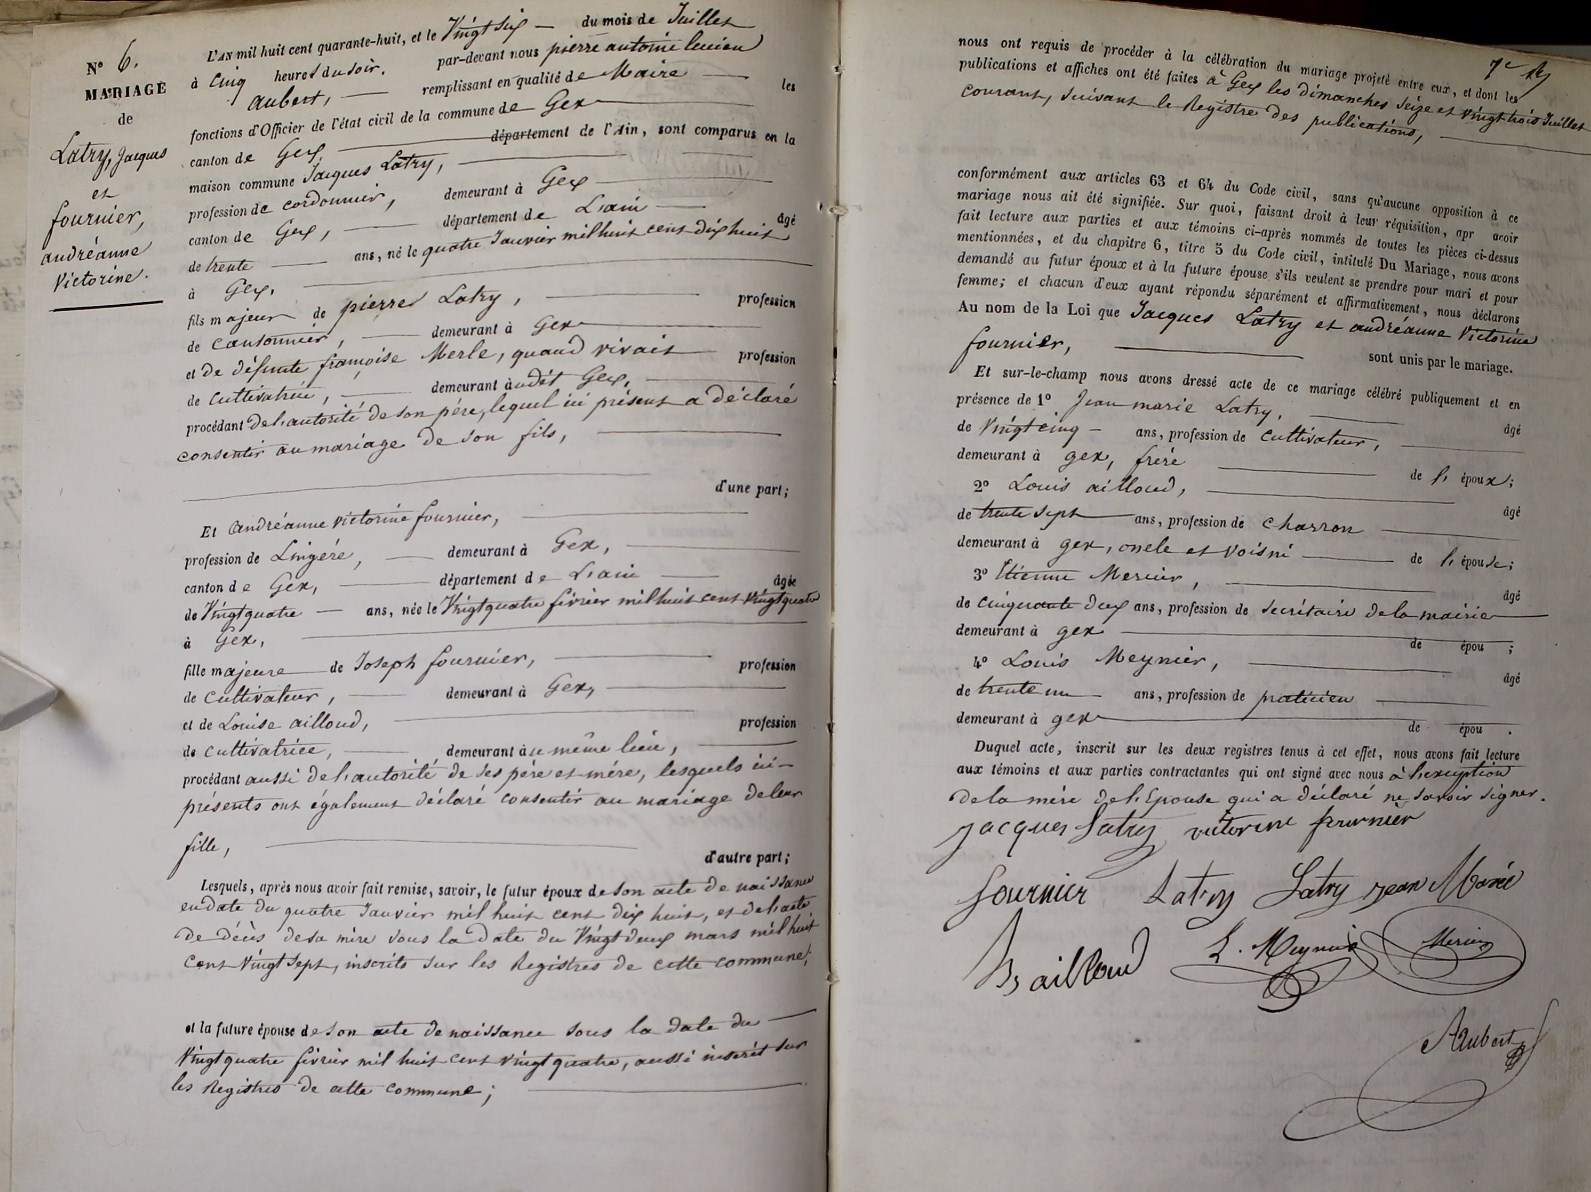 N° 6.
MARIAGE
de
Latry, Jacques
et
fournier,
andréanne
Victorine.
L'AN mil huit cent quarante-huit, et le Vingt six du mois de Juillet
à Cinq heures du soir. par-devant nous pierre antoine lucien
aubert, remplissant en qualité de Maire les
fonctions d'Officier de l'état civil de la commune de Gex
canton de Gex département de l'Ain, sont comparus en la
maison commune Jacques Latry,
profession de cordonnier, demeurant à Gex
canton de Gex, département de L'ain âgé
de trente ans, né le quatre Janvier mil huit cent dix huit
à Gex,
fils majeur de pierre Latry, profession
de cantonnier, demeurant à Gex
et de défunte françoise Merle, quand vivait profession
de cultivatrice, demeurant à udit Gex,
procédant de l'autorité de son père, lequel ici présent a déclaré
consentir au mariage de son fils,
d'une part;
Et andréanne victorine fournier,
profession de Lingère, demeurant à Gex,
canton de Gex, département de L'ain âgée
de Vingt quatre ans, née le Vingt quatre février mil huit cent vingt quatre
à Gex,
fille majeure de Joseph fournier, profession
de cultivateur, demeurant à Gex,
et de Louise ailloud, profession
de cultivatrice, demeurant à u même lieu,
procédant aussi de l'autorité de ses père et mère, lesquels ici
présents ont également déclaré consentir au mariage de leur
fille,
d'autre part;
Lesquels, après nous avoir fait remise, savoir, le futur époux de son acte de naissance
en date du quatre Janvier mil huit cent dix huit, et de l'acte
de décès de sa mère sous la date du Vingt deux mars mil huit
cent Vingt sept, inscrits sur les Registres de cette commune;
et la future épouse de son acte de naissance sous la date du
Vingt quatre février mil huit cent vingt quatre, aussi inscrit sur
les Registres de cette commune;
7e
nous ont requis de procéder à la célébration du mariage projeté entre eux, et dont les
publications et affiches ont été faites à Gex les dimanches seize et vingt trois Juillet
courant, suivant le Registre des publications,
conformément aux articles 63 et 64 du Code civil, sans qu'aucune opposition à ce
mariage nous ait été signifiée. Sur quoi, faisant droit à leur réquisition, apr avoir
fait lecture aux parties et aux témoins ci-après nommés de toutes les pièces ci-dessus
mentionnées, et du chapitre 6, titre 5 du Code civil, intitulé Du Mariage, nous avons
demandé au futur époux et à la future épouse s'ils veulent se prendre pour mari et pour
femme; et chacun d'eux ayant répondu séparément et affirmativement, nous déclarons
Au nom de la Loi que Jacques Latry et andréanne Victorine
fournier, sont unis par le mariage.
Et sur-le-champ nous avons dressé acte de ce mariage célébré publiquement et en
présence de 1° Jean marie Latry, âgé
de Vingt cinq ans, profession de cultivateur,
demeurant à gex, frère de l' époux;
2° Louis ailloud, âgé
de trente sept ans, profession de charron
demeurant à gex, oncle et voisin de l' épouse;
3° Etienne Mercier, âgé
de cinquante deux ans, profession de secrétaire de la mairie
demeurant à gex de épou ;
4° Louis Meynier, âgé
de trente un ans, profession de praticien
demeurant à gex de épou .
Duquel acte, inscrit sur les deux registres tenus à cet effet, nous avons fait lecture
aux témoins et aux parties contractantes qui ont signé avec nous à l'exception
de la mère de l'Epouse qui a déclaré ne savoir signer.
jacques latry victorine fournier
fournier Latry Latry jean Marie
ailloud L. Meynier Mercier
Aubert